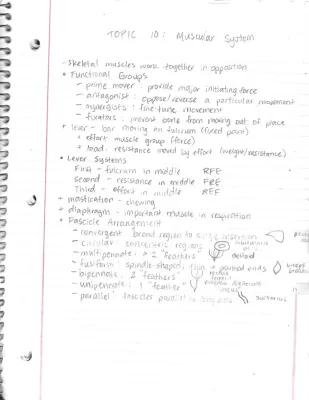 TOPIC 10: Muscular System
- Skeletal muscles work together in opposition
• Functional Groups
- prime mover: provide major initiating force
- antagonist: oppose/reverse a particular movement
- synergists: fine-tune movement
- fixators: prevent bone from moving out of place
• lever - bar moving on fulcrum (fixed point)
+ effort: muscle group (force)
+ load: resistance moved by effort (weight/resistance)
• Lever Systems
First - fulcrum in middle RFE
second - resistance in middle FRE
Third - effort in middle REF
• mastication - chewing
+ diaphragm - important muscle in respiration
• Fascicle Arrangement
- convergent: broad region to single insertion
- circular: concentric regions
- multipennate: > 2 "feathers" deltoid
- fusiform: spindle-shaped; thin + pointed ends
- bipennate: 2 "feathers" rectus femoris
- unipennate: 1 "feather" extensor digitorum longus
- parallel: fascicles parallel to long axis sartorius